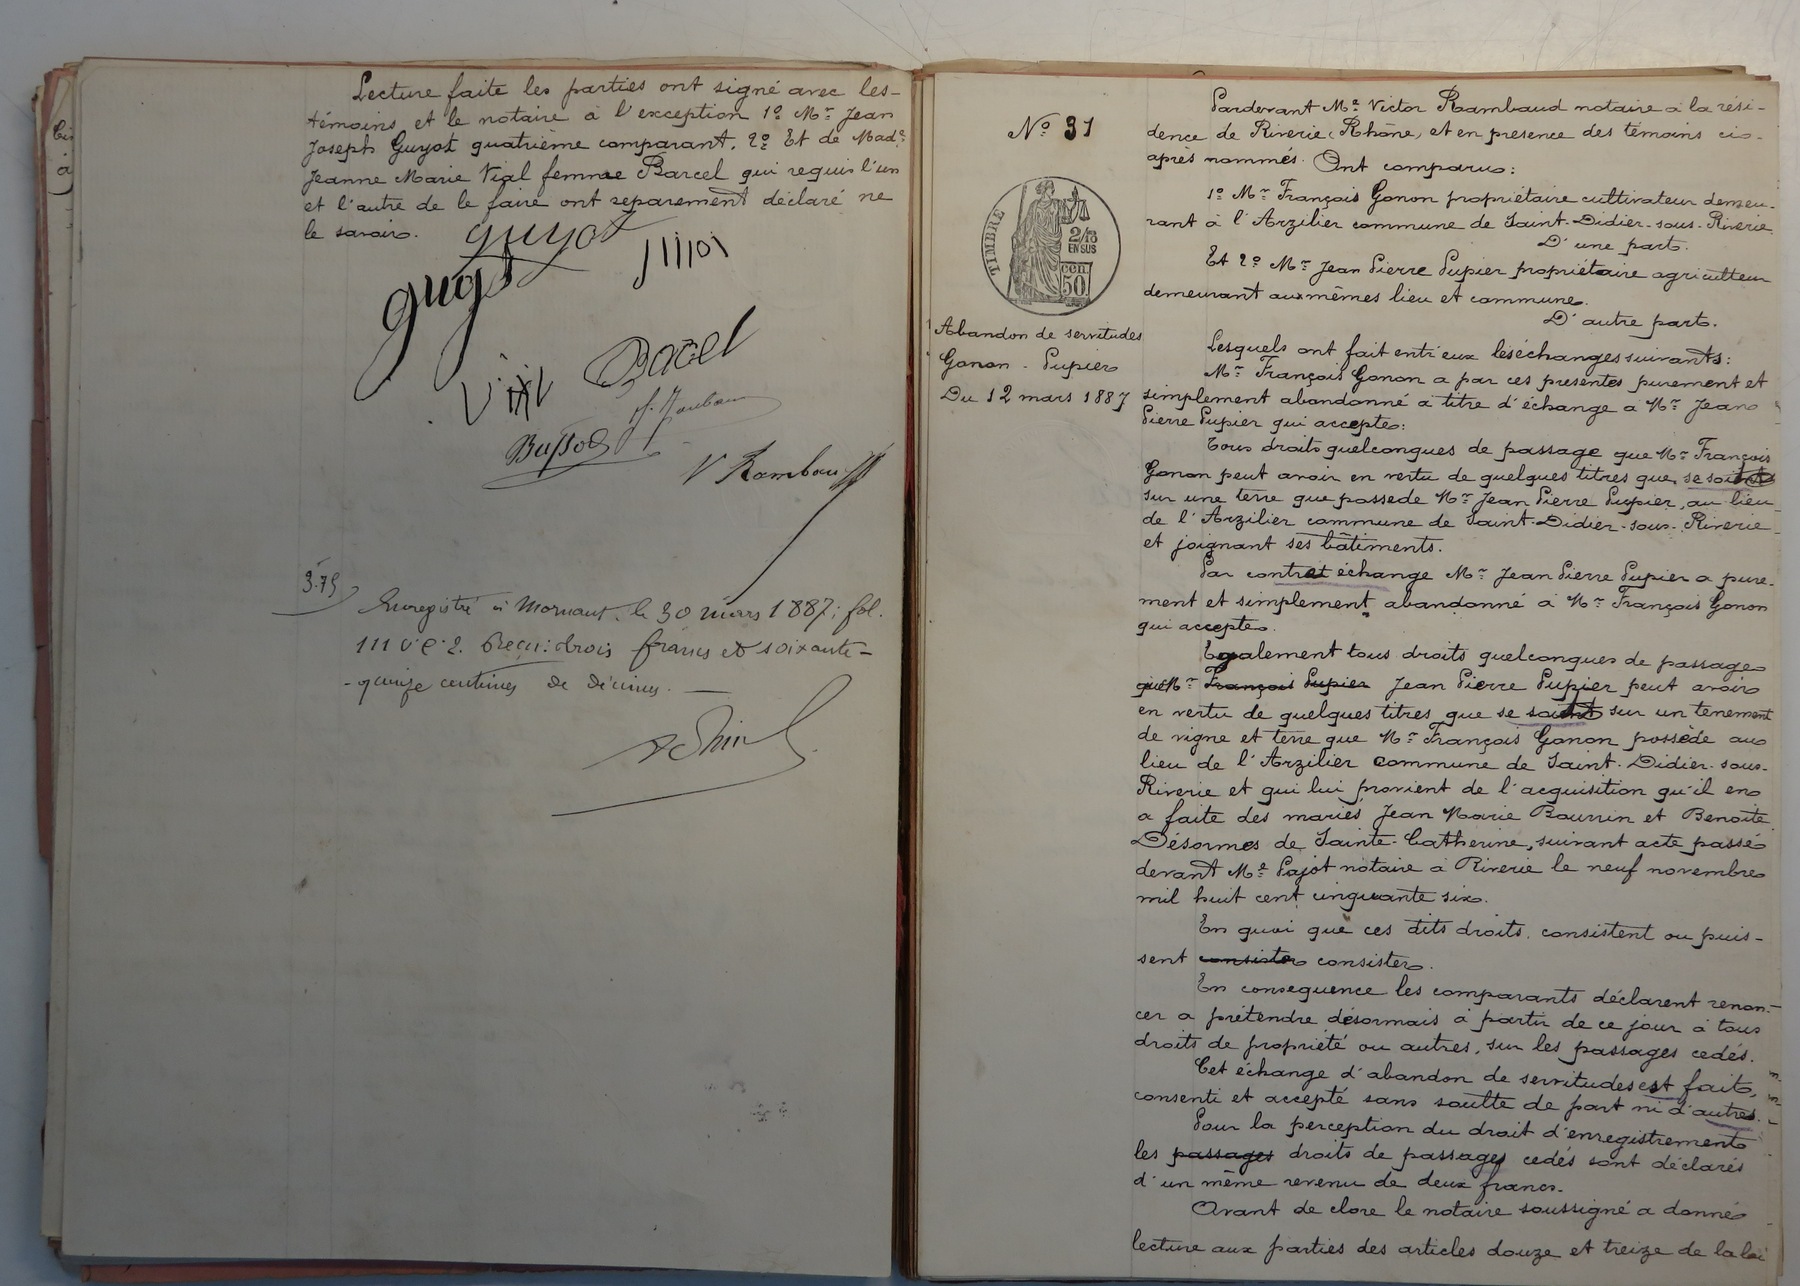 Lecture faite les parties ont signé avec les-
témoins et le notaire à l'exception 1º Mr Jean
Joseph Guyot quatrième comparant. 2º Et de Made
Jeanne Marie Vial femme Barcel qui requis l'un
et l'autre de le faire ont separement déclaré ne
le savoir.
guyot
guyot
V Rambaud
3.75
Enregistré à Mornant, le 30 mars 1887; fol.
111 Vº Cº 2. Reçu: trois francs et soixante-
-quinze centimes de décimes.
Nº 31
TIMBRE
2/10
EN SUS
50 cen.
Abandon de servitudes
Gonon - Pupier
Du 12 mars 1887
Pardevant Me Victor Rambaud notaire à la rési-
dence de Riverie (Rhône) et en presence des témoins ci-
après nommés. Ont comparu:
1º Mr François Gonon propriétaire cultivateur demeu-
rant à l'Arzilier commune de Saint-Didier-sous-Riverie
D'une part.
Et 2º Mr Jean Pierre Pupier propriétaire agriculteur
demeurant aux mêmes lieu et commune.
D'autre part.
Lesquels ont fait entr'eux les échanges suivants:
Mr François Gonon a par ces presentes purement et
simplement abandonné à titre d'échange à Mr Jean
Pierre Pupier qui accepte:
Tous droits quelconques de passage que Mr François
Gonon peut avoir en vertu de quelques titres que se soit
sur une terre que possede Mr Jean Pierre Pupier, au lieu
de l'Arzilier commune de Saint-Didier-sous-Riverie
et joignant ses bâtiments.
Par contret échange Mr Jean Pierre Pupier a pure-
ment et simplement abandonné à Mr François Gonon
qui accepte.
Egalement tous droits quelconques de passage
que Mr François Pupier Jean Pierre Pupier peut avoir
en vertu de quelques titres que se soit sur un tenement
de vigne et terre que Mr François Gonon possède au
lieu de l'Arzilier commune de Saint-Didier-sous-
Riverie et qui lui provient de l'acquisition qu'il en
a faite des mariés Jean Marie Bourrin et Benoite
Désormes de Sainte-Catherine, suivant acte passé
devant Me Pajot notaire à Riverie le neuf novembre
mil huit cent cinquante six.
En quoi que ces dits droits, consistent ou puis-
sent consister consister.
En consequence les comparants déclarent renon-
cer a prétendre désormais à partir de ce jour à tous
droits de propriété ou autres, sur les passages cedés.
Cet échange d'abandon de servitudes est fait,
consenti et accepté sans soulte de part ni d'autres.
Pour la perception du droit d'enregistrement
les passages droits de passages cedés sont déclarés
d'un même revenu de deux francs.
Avant de clore le notaire soussigné a donné
lecture aux parties des articles douze et treize de la loi